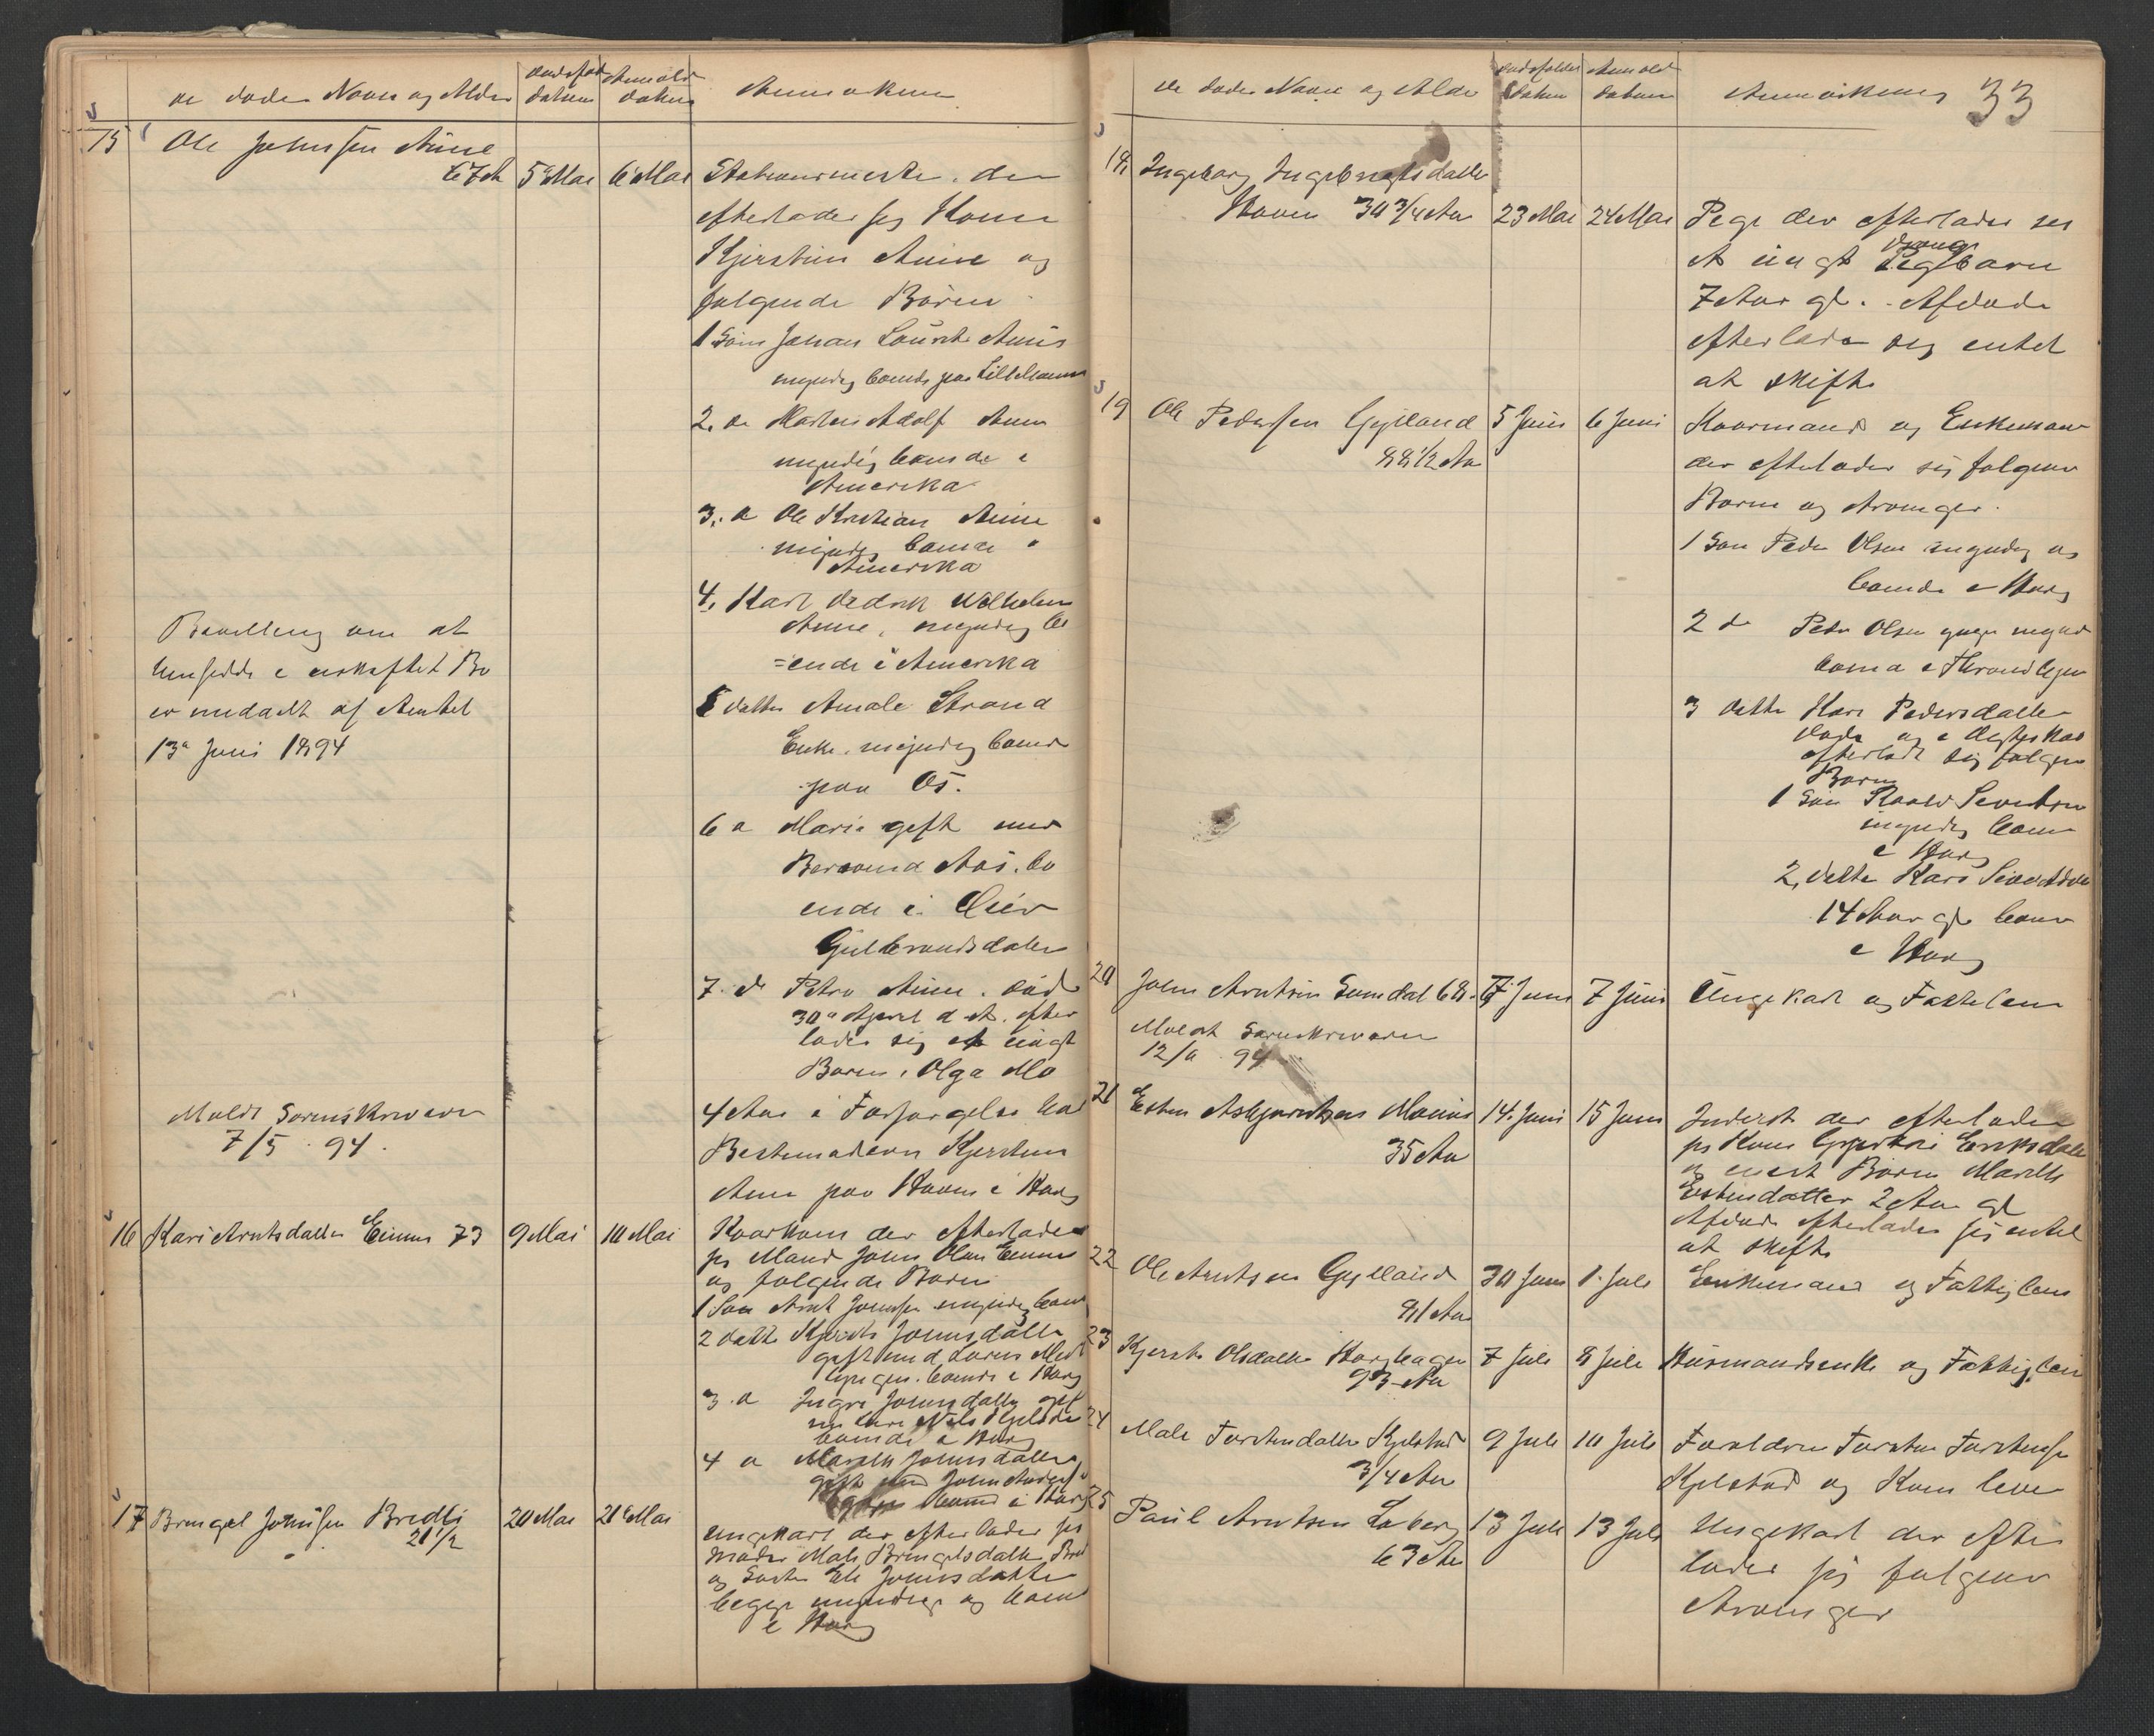 de dødes Navn og Alder
Dødsfald datum
Anmeldt datum
Anmerkning
15 Ole Johnsen Aune
67 A 5 Mai 6 Mai Stationsmester. der
efterlader sig Kone
Kjerstine Aune og
følgende Børn
1 Søn Johan Lauritz Aune
myndig boende paa Lillehammer
2. do Martin Adolf Aune
myndig boende i
Amerika
3. do Ole Kristian Aune
myndig boende i
Amerika
4. Karl Fredrik Wilhelm
Aune, myndig bo
=ende i Amerika
5 datter Amalie Strand
Enke. myndig boend
paa Os.
6 d Marie gift med
Aas. bo
ende i Øier
Gulbrandsdalen
7. d Petra Aune. død
30 April d A. efter
lader sig et ungt
Barn, Olga Mo
4 Aar i Forsørgelse hos
Bestemoderen Kjerstine
Aune paa Hovin i Horg
Bevilling om at
hensidde i uskiftet Bo
er meddelt af Amtet
13de Juni 1894
Meldt Sorenskriveren
7/5 94.
16 Kari Arntsdatter Eimme 73 9 Mai 10 Mai Kaarkone der efterlader
sig Mand John Olsen
og følgende Børn
1 Søn Arnt Johnsen myndig boend
2 datter Johnsdatter
gift med Lorens
boende i Horg
3. d Ingri Johnsdatter gift
med
boende i Horg
4 d Marith Johnsdatter
gift med John
boend i Horg
17 Brengel Johnsen Bredli
21 1/2 20 Mai 21 Mai Ungekarl der efterlader sig
Moder Mali Brengelsdatter
og Søster Eli Johnsdatter
begge myndige og boend
i Horg
De dødes Navne og Alder
Dødsfaldets Datum
Anmeldt datum
Anmerkning 33
18 Ingeborg Ingebrigtsdatter
Hovin 30 3/4 Aar 23 Mai 24 Mai Pige der efterlader sig
et uægt Drenge Pigebarn
7 Aar gl. Afdøde
efterlader sig intet
at skifte
19 Ole Pedersen Gylland 5 Juni 6 Juni Kaarmand og Enkemand
88 1/2 Aar der efterlader sig følgende
Børn og Arvinger.
1 Søn Peder Olsen myndig og
boende i Horg
2 do Peder Olsen yngre myndig
boend i Throndhjem
3 datter Kari Pedersdatter
døde og i Ægteskab
efterladt sig følgende
Børn
1 Søn Sivertsen
myndig boen
i Horg
2, datter Kari Sivertsdatter
14 Aar gl boen
i Horg
20 John Arntsen Sundal 68. 7 Juni 7 Juni Ungekarl og Fattiglem
Meldt Sorenskriveren
12/6 94
21 Esten Asbjørnsen 14. Juni 15 Juni Inderst der efterlader
35 Aar sig Kone Eriksdatter
og eneste Barn Marith
Estensdatter 2 Aar gl
Afdøde efterlader sig intet
at skifte
22 Ole Arntsen Gylland 30 Juni 1. Juli Enkemand og Fattiglem
81 Aar
23 Kjersti Olsdatter Horghagen 7 Juli 8 Juli Husmandsenke og Fattiglem
93 Aar
24 Mali Torstensdatter Kjelstad 9 Juli 10 Juli Forældre Torsten Torstensen
3/4 Aar Kjelstad og Kone lever
25 Paul Arntsen Loberg 13 Juli 13 Juli Ungekarl der efter
63 Aar lader sig følgende
Arvinger